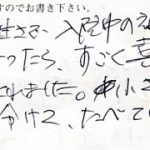 すのでお書き下さい。
させるで 入院中の
ったら、すごく喜
れました。中小さ
分けて、たべてい